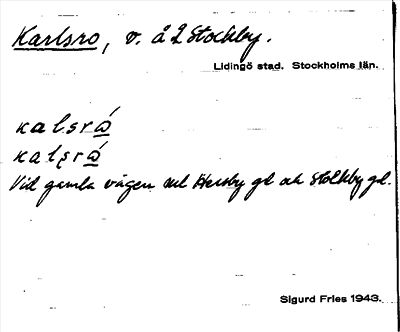 Karlsro, v. å 2 Stockby.
Lidingö stad. Stockholms län.
kalsrώ̲
kalʂrώ̲
Vid gamla vägen mel Hersby gd och Stockby gd.
Sigurd Fries 1943.